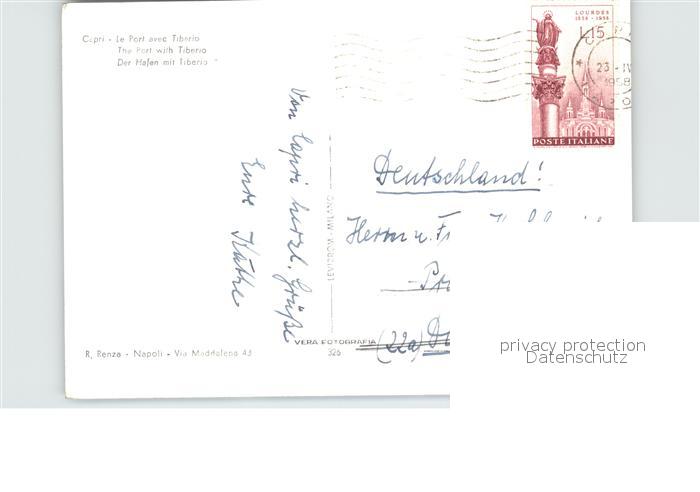 Capri - Le Port avec Tiberio
The Port with Tiberio
Der Hafen mit Tiberio
LOURDES
1858 - 1958
L.15
POSTE ITALIANE
23 - IV
1958
Von Capri herzl. Grüße
Eure Käthe
LEVIBROM - MILANO
Deutschland!
Herrn u.
(22a)
VERA FOTOGRAFIA
326
R. Renza - Napoli - Via Maddalena 43
privacy protection
Datenschutz